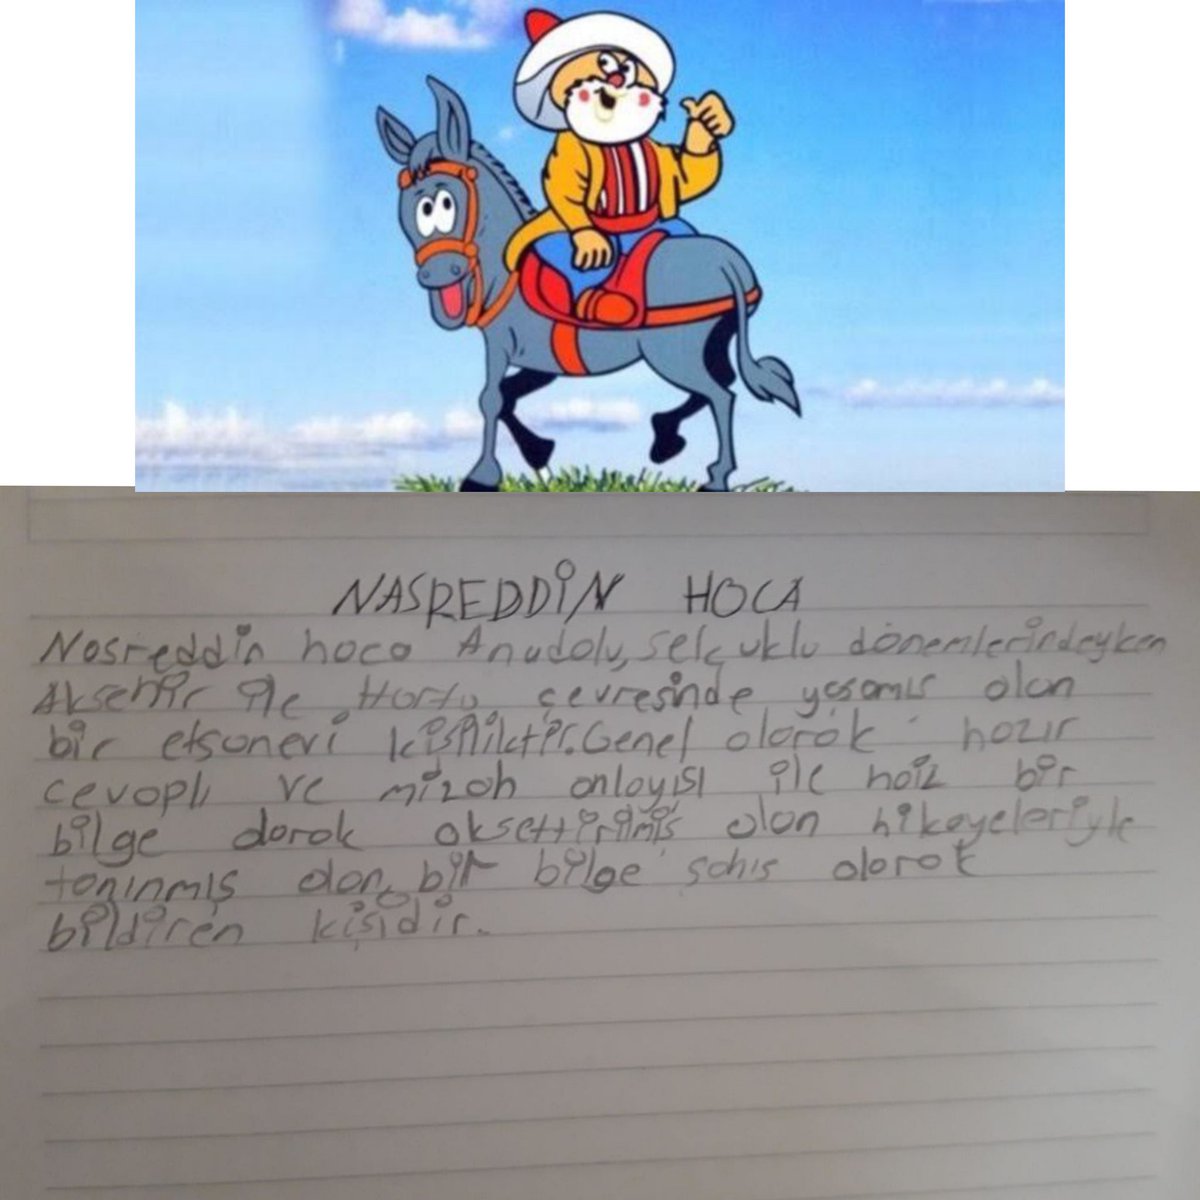 NASREDDİN HOCA
Nasreddin hoca Anadolu, selçuklu dönemlerindeyken
Akşehir ile Hortu çevresinde yaşamış olan
bir efsanevi kişiliktir. Genel olarak hazır
cevaplı ve mizah anlayışı ile haiz bir
bilge olarak aksettirilmiş olan hikayeleriyle
tanınmış olan, bir bilge şahıs olarak
bildiren kişidir.